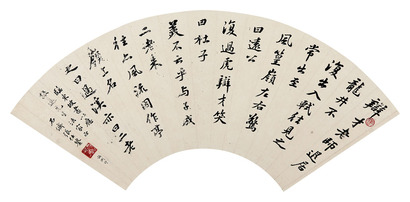 辯才老師退居
龍井不
復出入軾往見之
常出至
風篁嶺左右驚
曰遠公
復過虎辯才笑
曰杜子
美不云乎與子成
二老來
往亦風流因作亭
嶺上名
之曰過溪亦曰二老